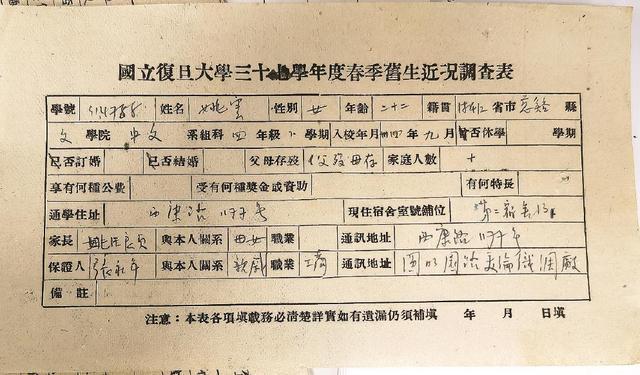 國立復旦大學三十七學年度春季舊生近况調查表
學號 姓名 姚雲 性別 女 年齡 二十二 籍貫 浙江 省市 慈谿 縣
文 學院 中文 系組科 四 年級 下 學期 入校年月 卅 年 九 月 曾否休學 學期
已否訂婚 已否結婚 父母存歿 父歿母存 家庭人數 十
享有何種公費 受有何種獎金或資助 有何特長
通學住址 西康路 號 現住宿舍室號鋪位 第二宿舍
家長 姚 與本人關系 母女 職業 通訊地址 西康路 號
保證人 張 年 與本人關系 親戚 職業 工商 通訊地址 圓明園路 廠
備註
注意：本表各項填載務必清楚詳實如有遺漏仍須補填 年 月 日填